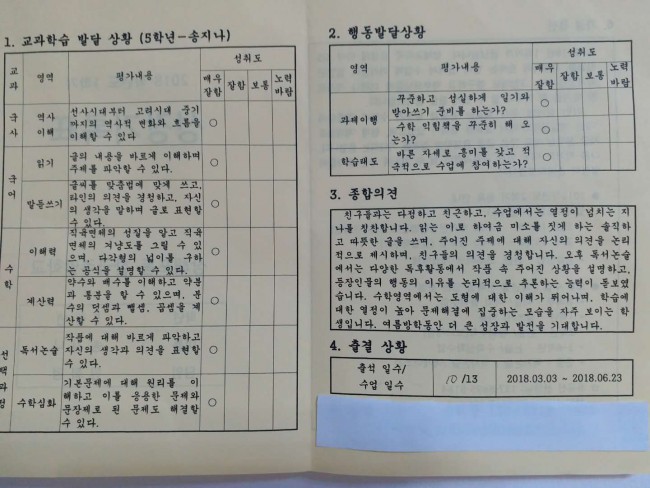 1. 교과학습 발달 상황 (5학년-송지나)
교과 영역 평가내용 성취도
매우잘함 잘함 보통 노력바람
국사 역사이해
선사시대부터 고려시대 중기
까지의 역사적 변화와 흐름을
이해할 수 있다
○
국어 읽기
글의 내용을 바르게 이해하며
주제를 파악할 수 있다.
○
받듣쓰기
글씨를 맞춤법에 맞게 쓰고,
타인의 의견을 경청하고, 자신
의 생각을 말하며 글로 표현할
수 있다.
○
수학 이해력
직육면체의 성질을 알고 직육
면체의 겨냥도를 그릴 수 있
으며, 다각형의 넓이를 구하
는 공식을 설명할 수 있다.
○
계산력
약수와 배수를 이해하고 약분
과 통분을 할 수 있으며, 분
수의 덧셈과 뺄셈, 곱셈을 계
산할 수 있다.
○
선택과정 독서논술
작품에 대해 바르게 파악하고
자신의 생각과 의견을 표현할
수 있다.
○
수학심화
기본문제에 대해 원리를 이
해하고 이를 응용한 문제와
문장제로 된 문제도 해결할
수 있다.
○
2. 행동발달상황
영역 평가내용 성취도
매우잘함 잘함 보통 노력바람
과제이행
꾸준하고 성실하게 일기와
받아쓰기 준비를 하는가?
○
수학 익힘책을 꾸준히 해 오
는가?
○
학습태도
바른 자세로 흥미를 갖고 적
극적으로 수업에 참여하는가?
○
3. 종합의견
친구들과는 다정하고 친근하고, 수업에서는 열정이 넘치는 지
나를 칭찬합니다. 읽는 이로 하여금 미소를 짓게 하는 솔직하
고 따뜻한 글을 쓰며, 주어진 주제에 대해 자신의 의견을 논리
적으로 제시하며, 친구들의 의견을 경청합니다. 오후 독서논술
에서는 다양한 독후활동에서 작품 속 주어진 상황을 설명하고,
등장인물의 행동의 이유를 논리적으로 추론하는 능력이 돋보였
습니다. 수학영역에서는 도형에 대한 이해가 뛰어나며, 학습에
대한 열정이 높아 문제해결에 집중하는 모습을 자주 보이는 학
생입니다. 여름방학동안 더 큰 성장과 발전을 기대합니다.
4. 출결 상황
출석 일수/
수업 일수
10 /13
2018.03.03 ~ 2018.06.23